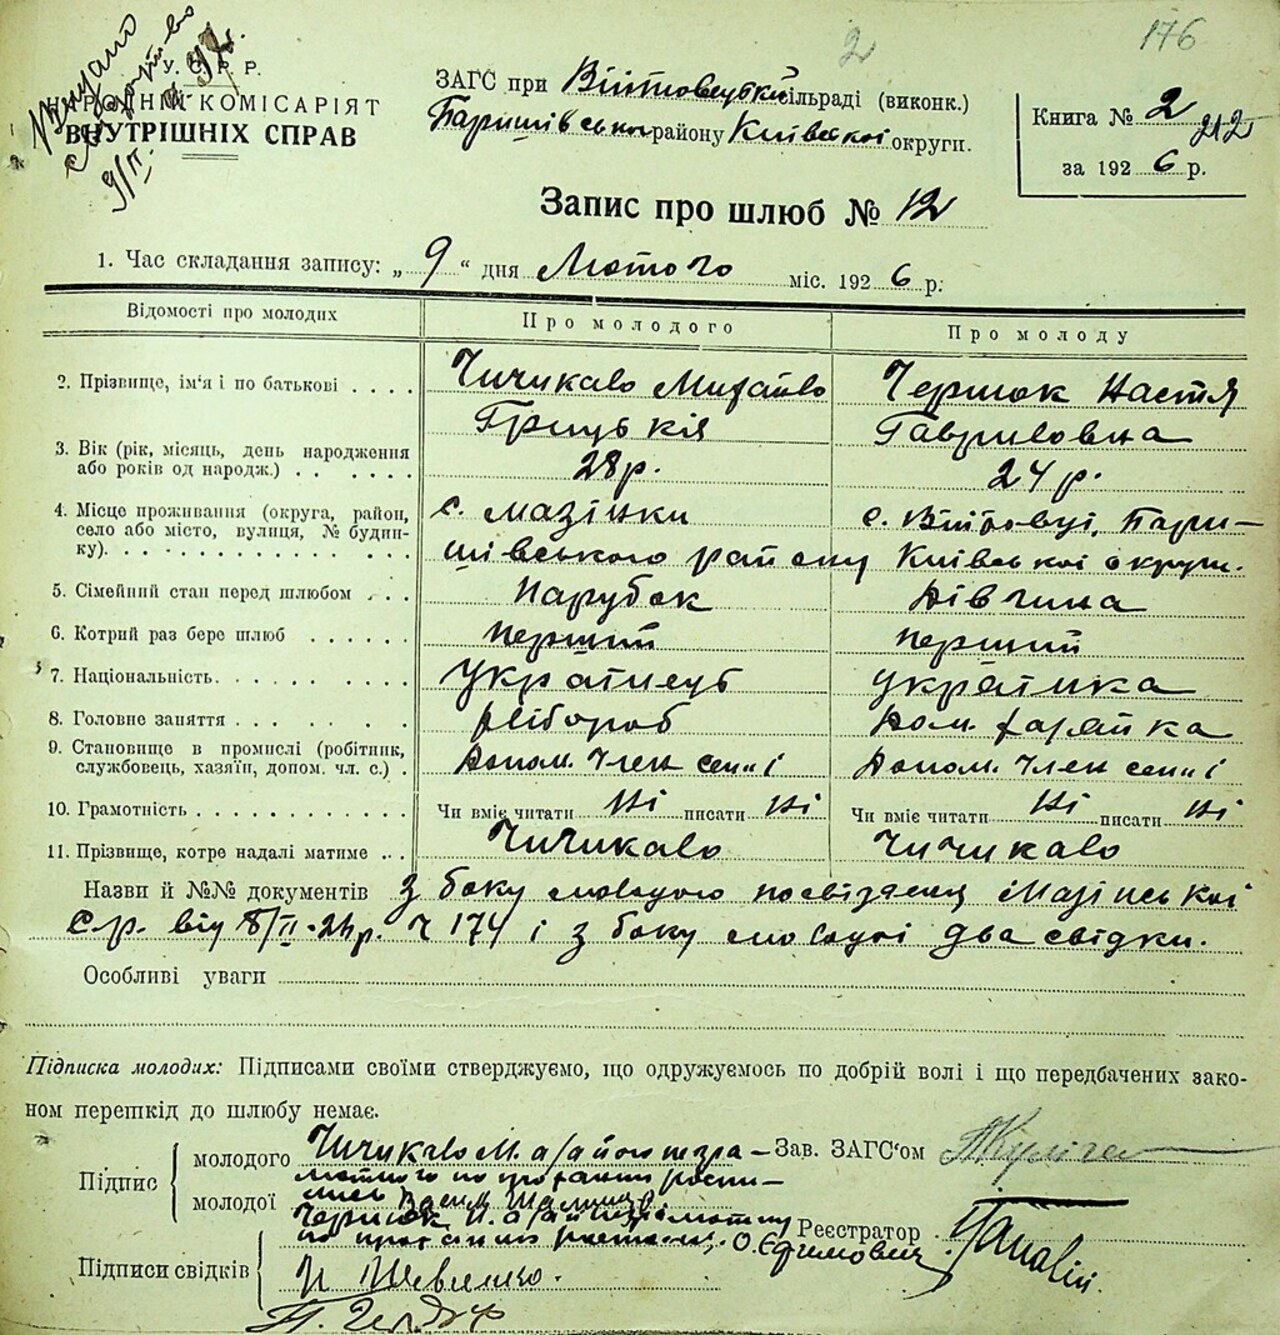 176
2
У. С. Р. Р.
НАРОДНІЙ КОМІСАРІЯТ
ВНУТРІШНІХ СПРАВ
9/II.
ЗАГС при Війтовецькій сільраді (виконк.)
Баришівського району Київської округи.
Книга № 2
212
за 1926 р.
Запис про шлюб № 12
1. Час складання запису: „ 9 “ дня Лютого міс. 1926 р.
Відомості про молодих Про молодого Про молоду
2. Прізвище, ім'я і по батькові . . . . Чичикало Михайло Чернюк Настя
Грицькія Гавриловна
3. Вік (рік, місяць, день народження або років од народж.) . . . . . . 28 р. 24 р.
4. Місце проживання (округа, район, село або місто, вулиця, № будинку). с. Мазінки с. Війтовці, Бари—
шівського району Київської округи.
5. Сімейний стан перед шлюбом . . . Парубок Дівчина
6. Котрий раз бере шлюб . . . . . . перший перший
7. Національність. . . . . . . . . . Українець українка
8. Головне заняття . . . . . . . . хлібороб Дом. хазяйка
9. Становище в промислі (робітник, службовець, хазяїн, допом. чл. с.) . Допом. член семї Допом. член семї
10. Грамотність . . . . . . . . . . . . Чи вміє читати Ні писати Ні Чи вміє читати Ні писати Ні
11. Прізвище, котре надалі матиме . . . Чичикало Чичикало
Назви й №№ документів З боку молодого посвідченя Мазінської
С.р. від 8/II-24р. Ч 174 і з боку молодої два свідки.
Особливі уваги
Підписка молодих: Підписами своїми стверджуємо, що одружуємось по добрій волі і що передбачених зако-
ном перешкід до шлюбу немає.
Підпис
молодого Чичикало М. а за його негра—
мотного по проханню роспи—
молодої
Чернюк Н. а за неграмотну
по проханню
О. Єфимович
Зав. ЗАГС'ом
Реєстратор
Підписи свідків
Н Шевченко.